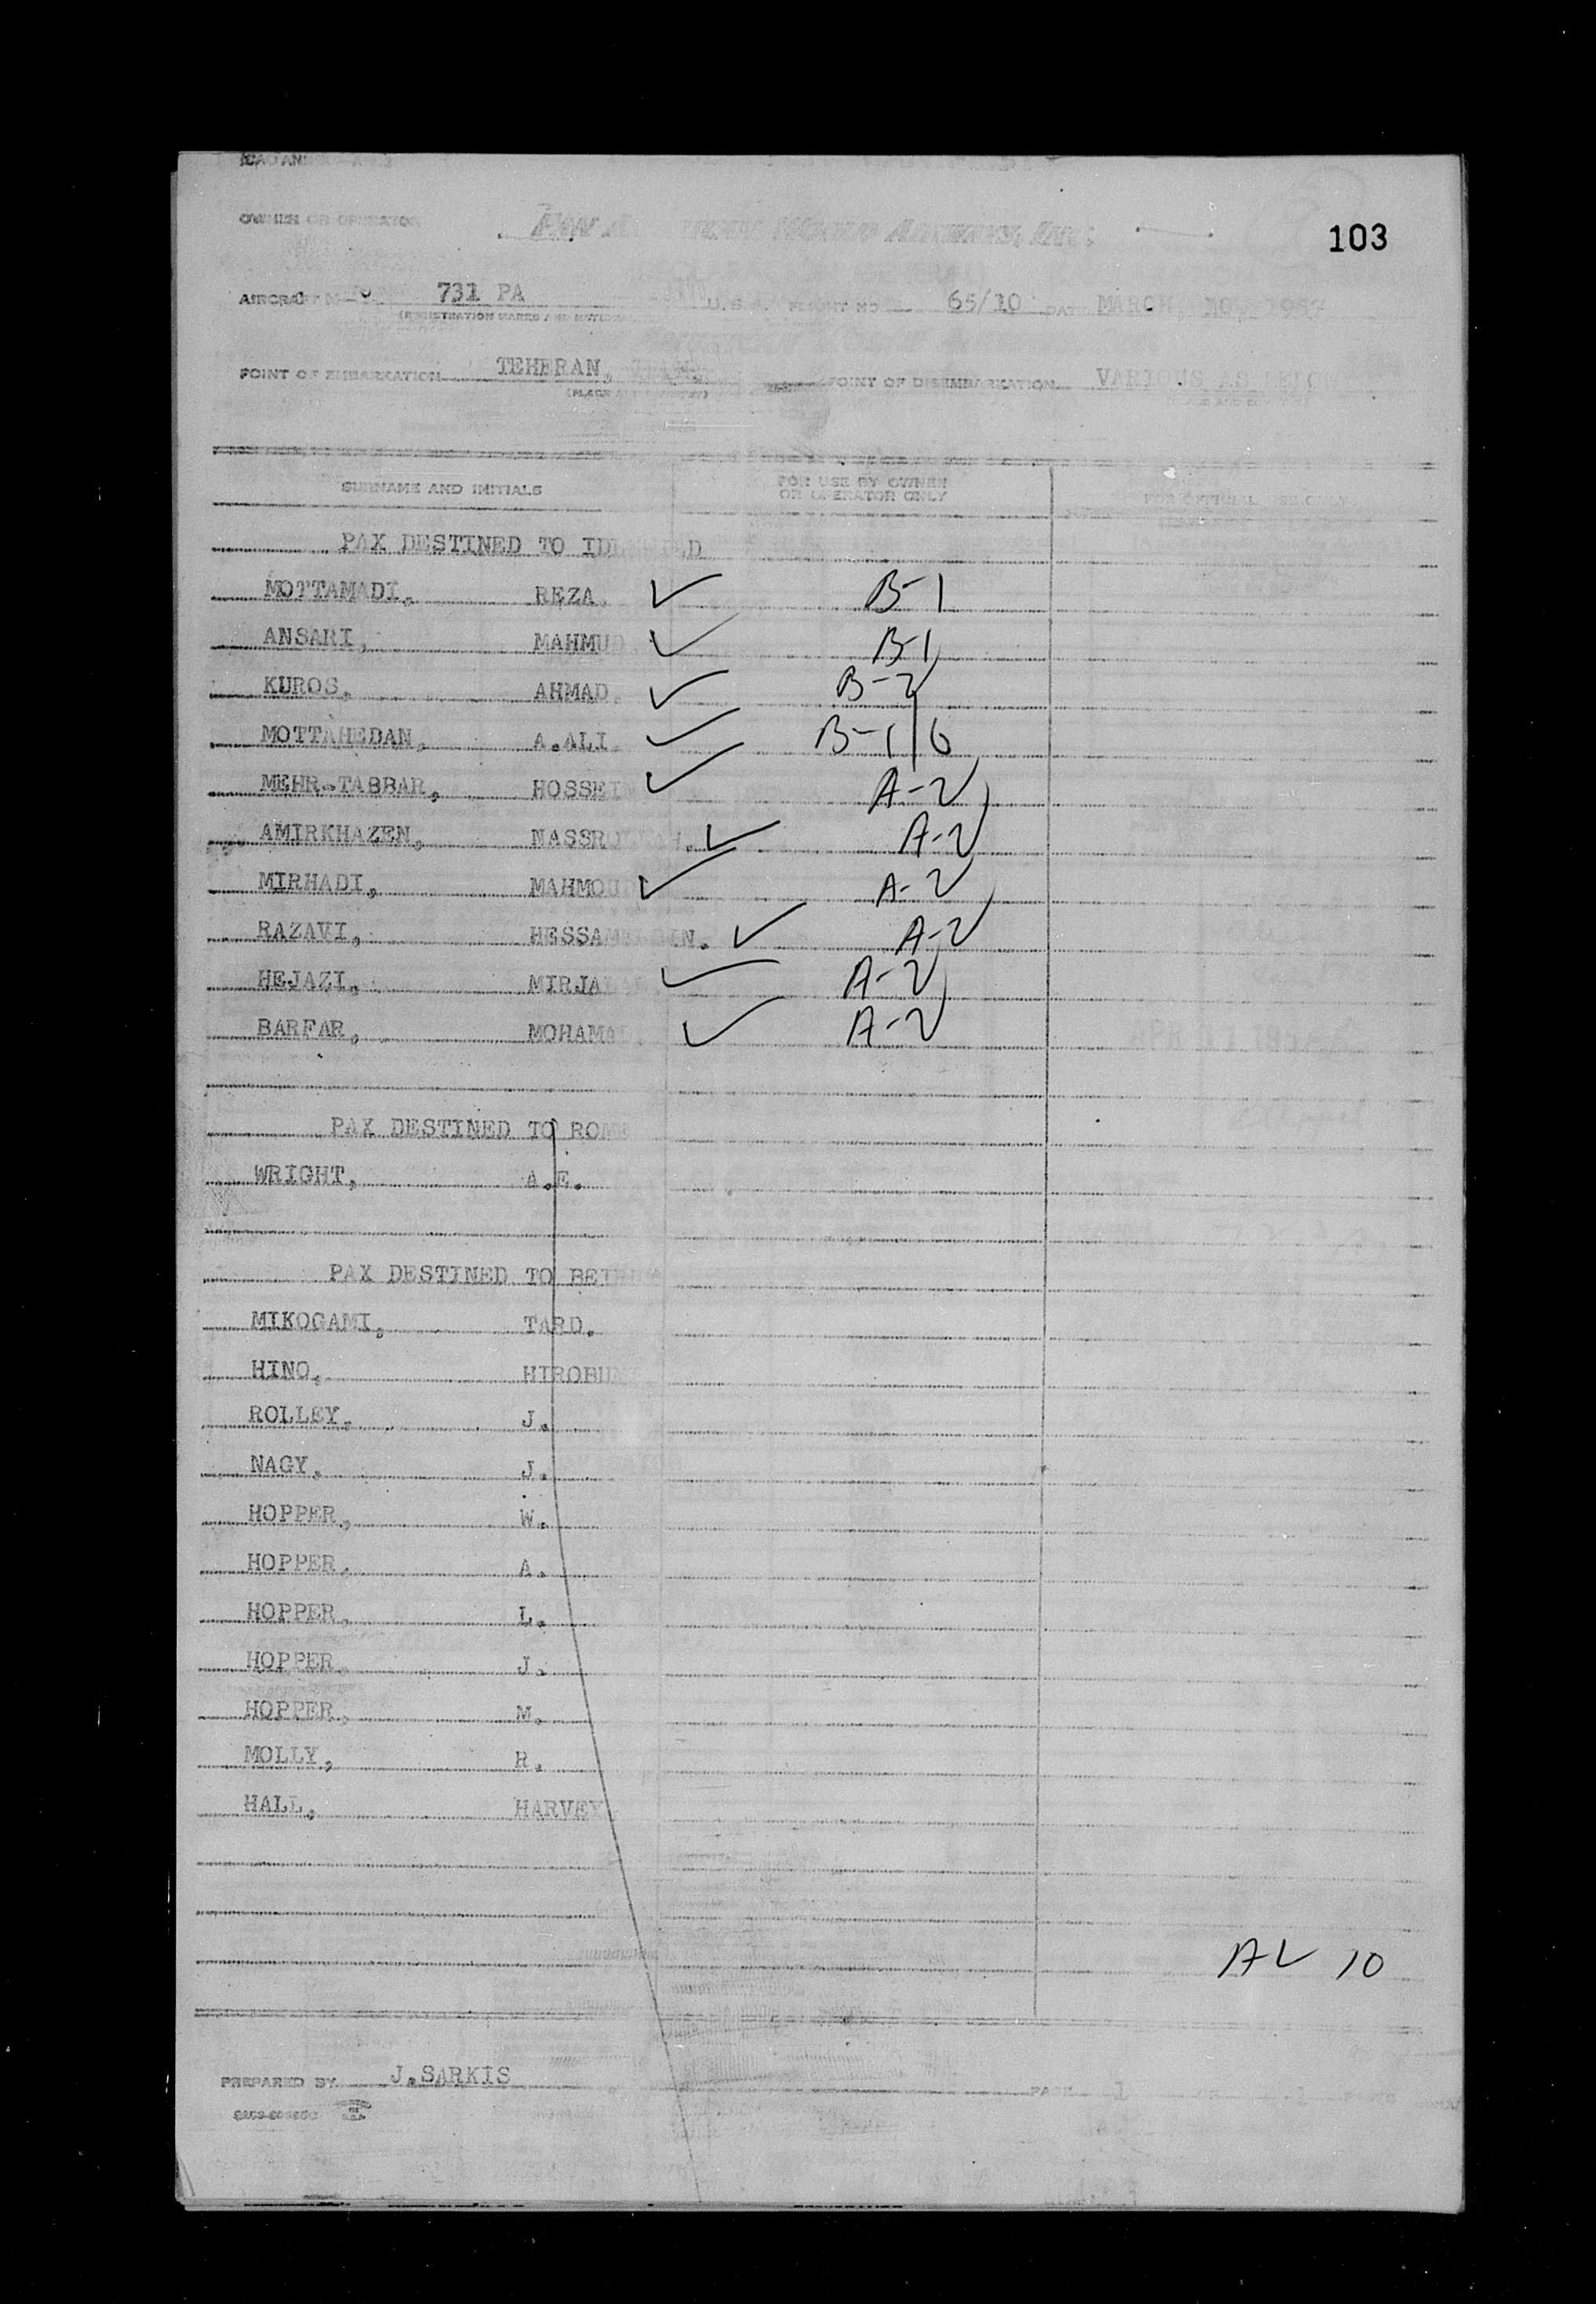 103
OWNER OR OPERATOR
AIRCRAFT 731 PA U.S.A. FLIGHT NO 65/10 DATE MARCH 10,
POINT OF EMBARKATION TEHERAN, IRAN. POINT OF DISEMBARKATION VARIOUS AS
SURNAME AND INITIALS FOR USE BY OWNER OR OPERATOR ONLY FOR OFFICIAL USE ONLY
PAX DESTINED TO
MOTTAMADI, REZA. ✓ B-1
ANSARI, MAHMUD ✓ B-1
KUROS, AHMAD. ✓ B-2
MOTTAHEDAN, A.ALI. ✓ B-1 6
MEHR-TABBAR, HOSSEI ✓ A-2
AMIRKHAZEN, ✓ A-2
MIRHADI, MAHMOUD ✓ A-2
RAZAVI, ✓ A-2
HEJAZI, ✓ A-2
BARFAR, ✓ A-2
PAX DESTINED TO ROME
WRIGHT, A.E.
PAX DESTINED TO
MIKOGAMI, TARD.
HINO,
ROLLEY, J.
NAGY, J.
HOPPER, W.
HOPPER, A.
HOPPER, L.
HOPPER J.
HOPPER, M.
MOLLY, R.
HALL, HARVEY
10
PREPARED BY J.SARKIS PAGE 1 OF 1 PAGES